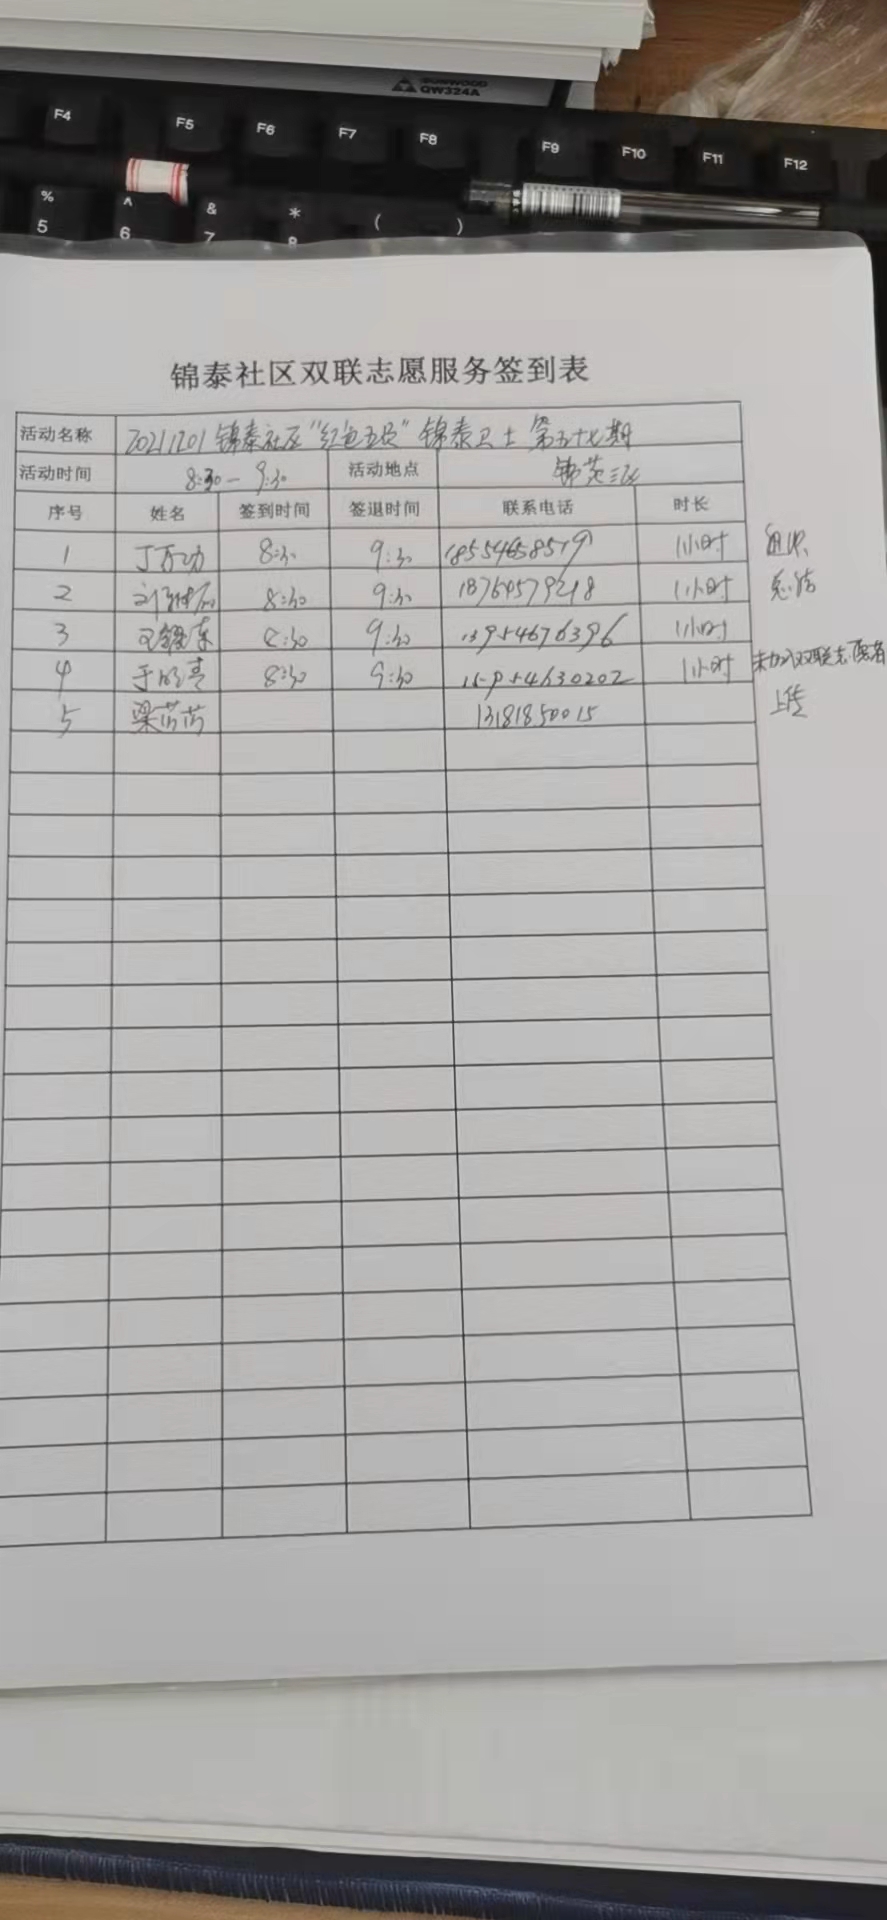 QW324A
F4 F5 F6 F7 F8 F9 F10 F11 F12
% ^ & * ( )
5 6 7 8
锦泰社区双联志愿服务签到表
活动名称 20211201锦泰社区"红色五员"锦泰卫士第五十七期
活动时间 8:30-9:30 活动地点 锦苑三区
序号 姓名 签到时间 签退时间 联系电话 时长
1 丁万功 8:30 9:30 18554658519 1小时 组织
2 刘 8:30 9:30 18764579218 1小时 总结
3 8:30 9:30 13954676396 1小时
4 于 8:30 9:30 15954630202 1小时 未加入双联志愿者
5 梁芳芳 13181850015 上传